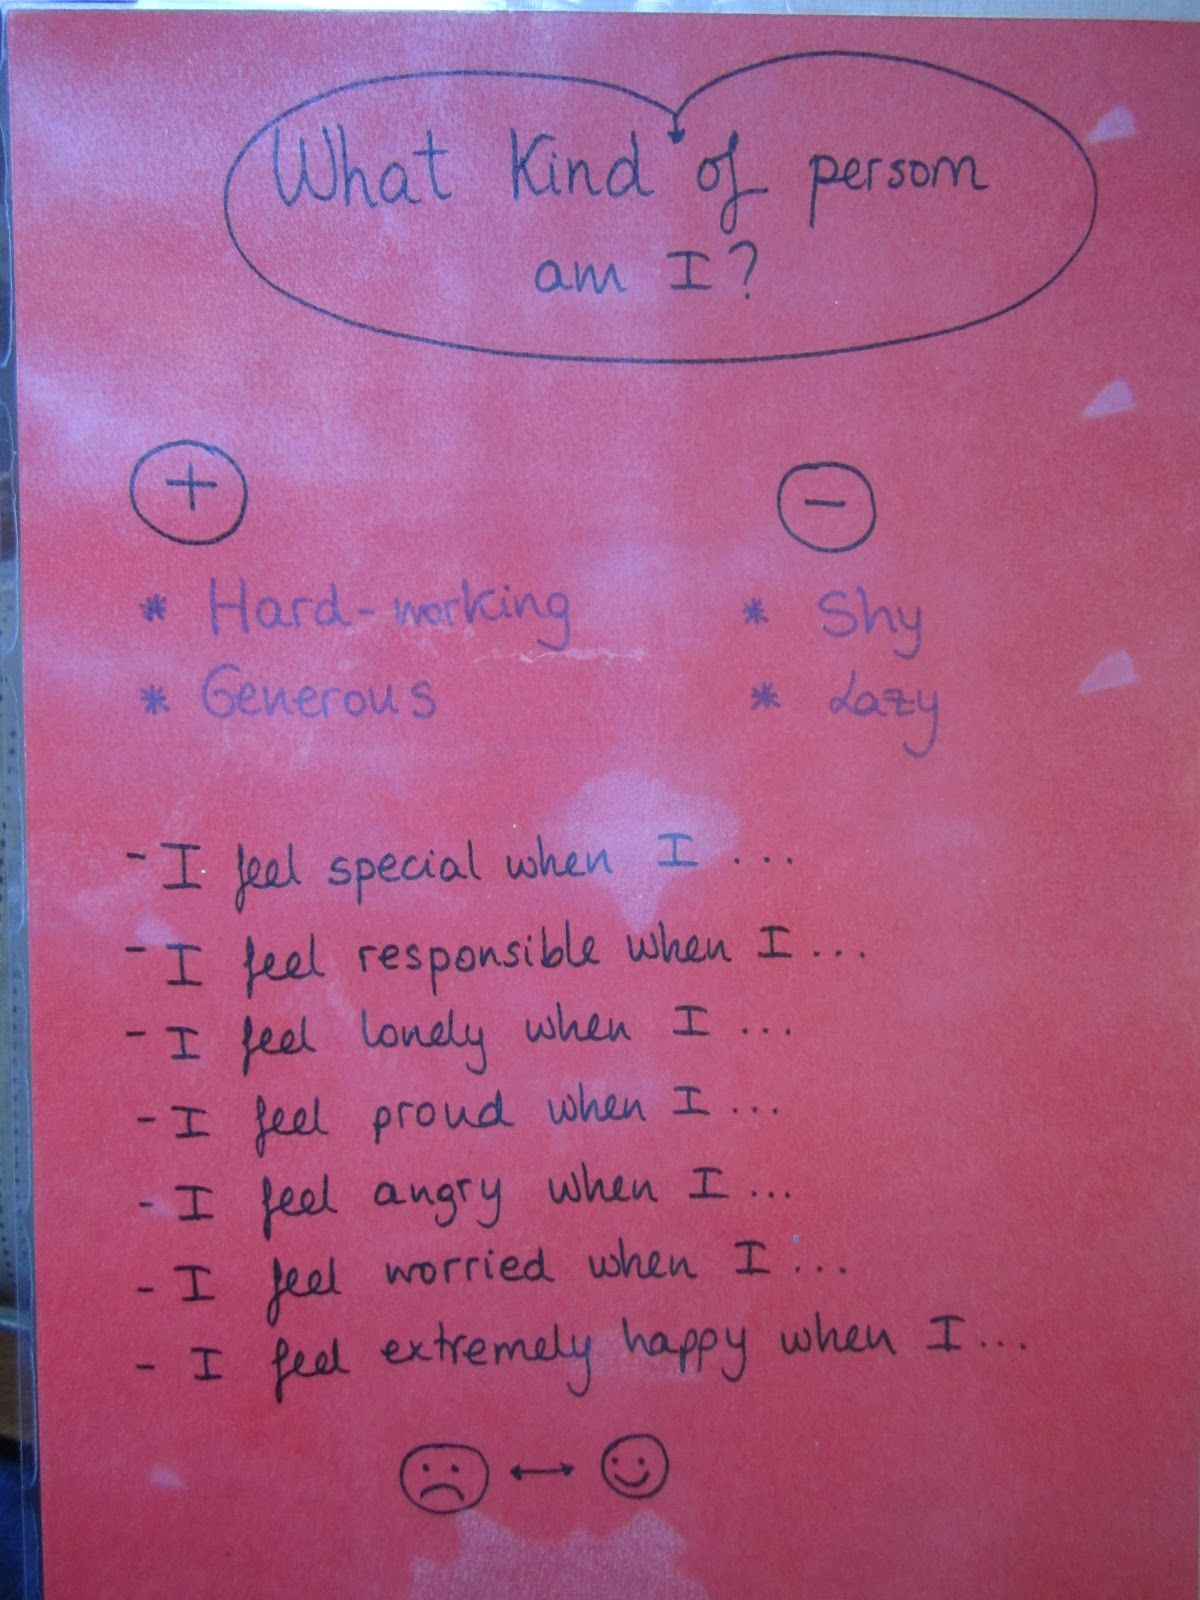 What Kind of person
am I?
+ -
* Hard-working * Shy
* Generous * Lazy
- I feel special when I ...
- I feel responsible when I ...
- I feel lonely when I ...
- I feel proud when I ...
- I feel angry when I ...
- I feel worried when I ...
- I feel extremely happy when I ...